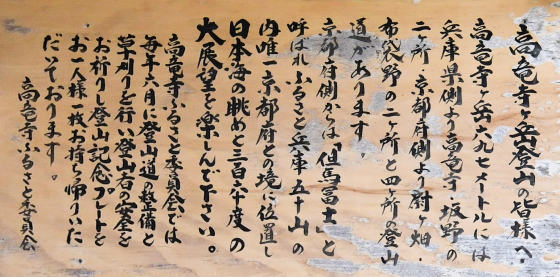 高竜寺ヶ岳登山の皆様へ
高竜寺ヶ岳六九七メートルには
兵庫県側より高竜寺・坂野の
二ヶ所 京都府側より尉ヶ畑・
布袋野の二ヶ所と四ヶ所の登山
道があります。
京都府側からは「但馬富士」と
呼ばれふるさと兵庫五十山の
内唯一京都府との境に位置し
日本海の眺めと三百六十度の
大展望を楽しんで下さい。
高竜寺ふるさと委員会では
毎年六月に登山道の整備と
草刈りを行い登山者の安全を
お祈りし登山記念プレートを
お一人様一枚お持ち帰りいた
だいております。
高竜寺ふるさと委員会